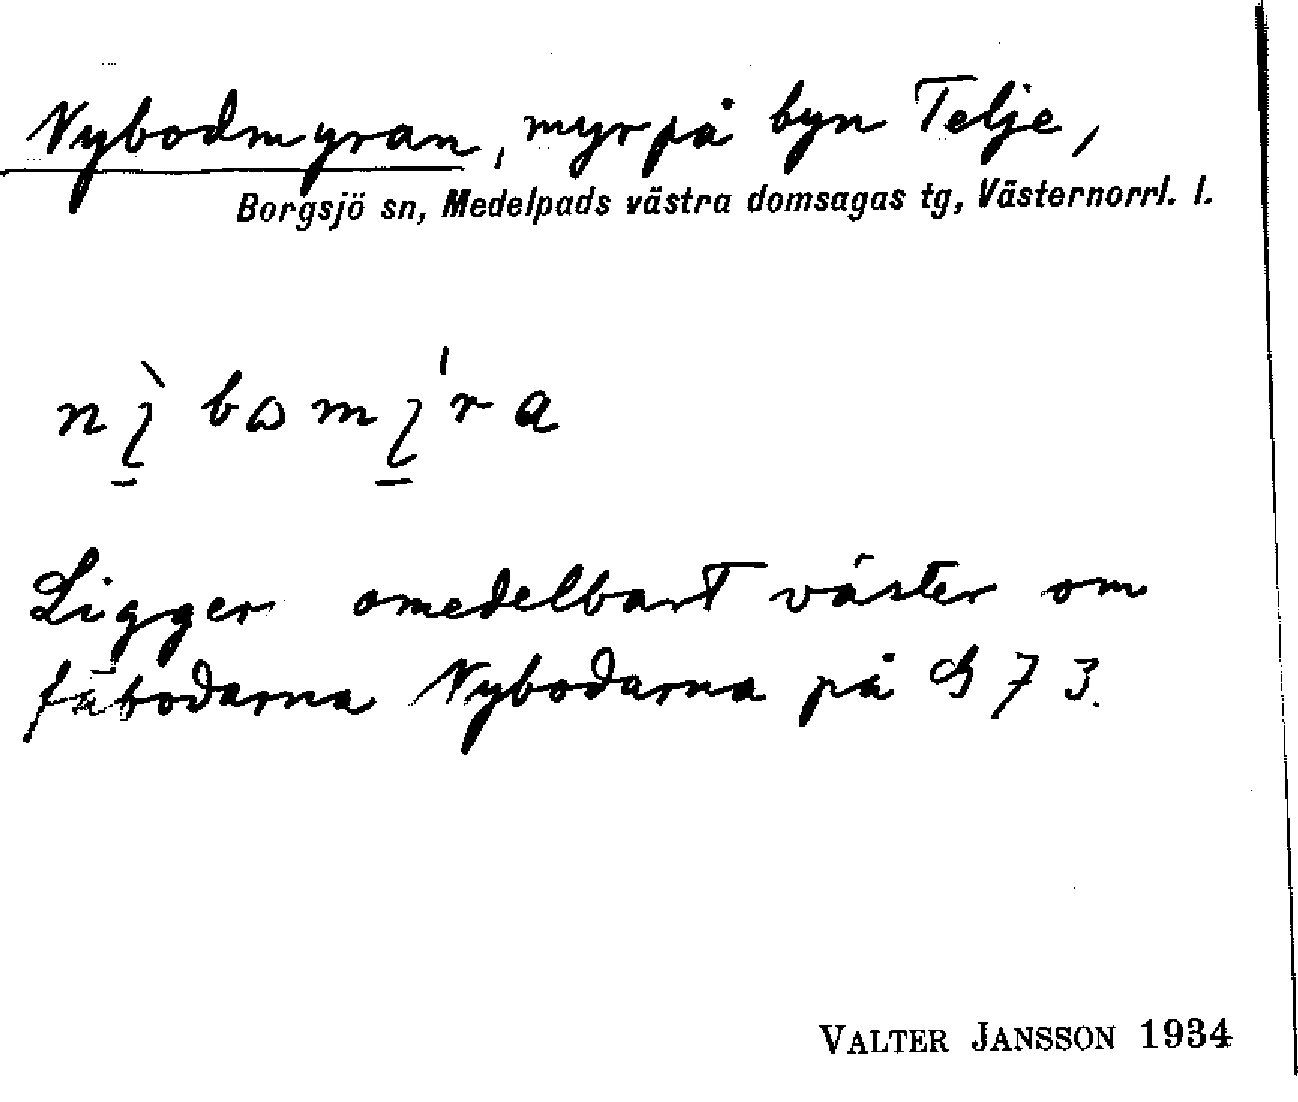 Nybodmyran, myr på byn Telje,
Borgsjö sn, Medelpads västra domsagas tg, Västernorrl. l.
Ligger omedelbart väster om
fäbodarna Nybodarna på S 73.
VALTER JANSSON 1934